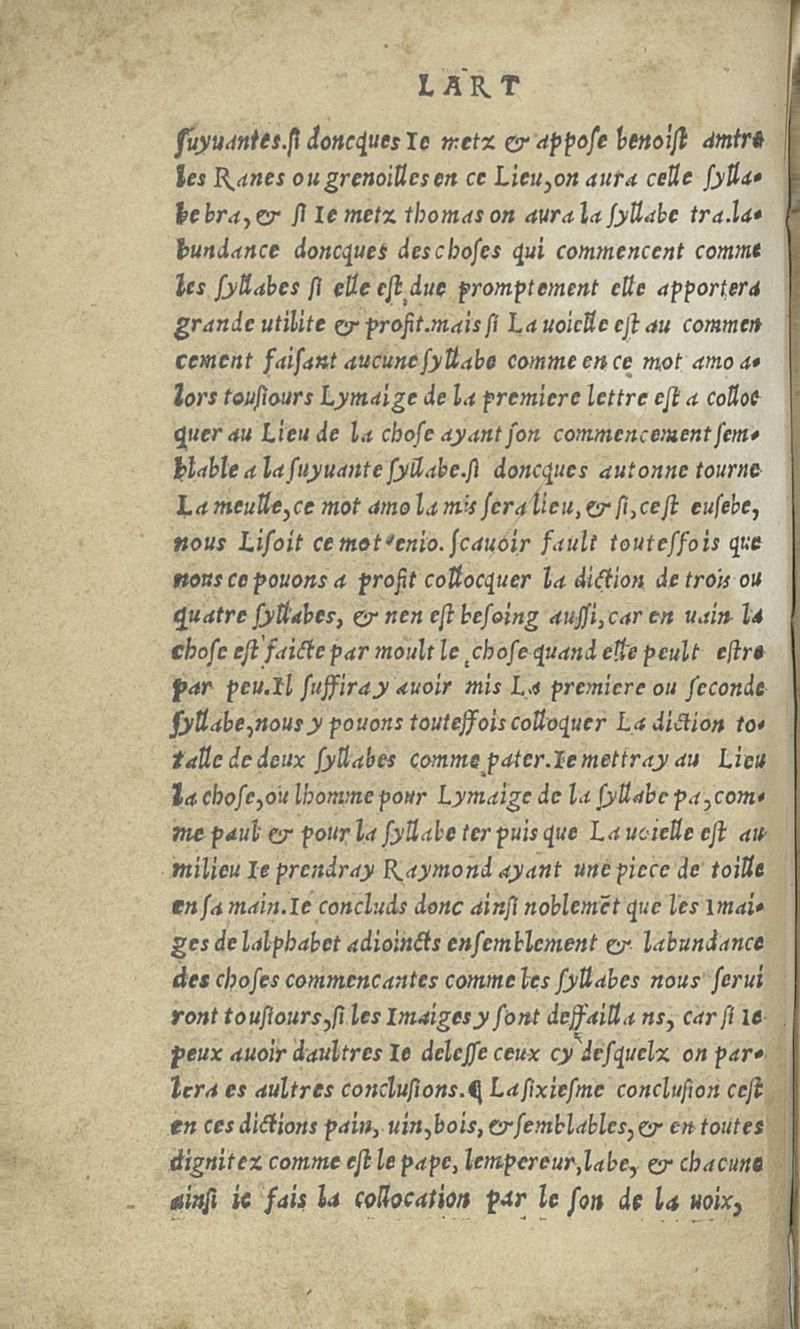 LART
ſuyuantes.ſi doncques Ie metz & appoſe benoiſt amtre
les Ranes ou grenoilles en ce Lieu,on aura celle ſylla-
be bra,& ſi Ie metz thomas on aura la ſyllabe tra.la-
bundance doncques des choſes qui commencent comme
les ſyllabes ſi elle eſt due promptement elle apportera
grande utilite & profit.mais ſi La uoielle eſt au commen
cement faiſant aucune ſyllabe comme en ce mot amo a-
lors touſiours Lymaige de la premiere lettre eſt a colloc
quer au Lieu de la choſe ayant ſon commencement ſem-
blable a la ſuyuante ſyllabe.ſi doncques autonne tourne
La meulle,ce mot amo la mis ſera lieu,& ſi,ceſt euſebe,
nous Liſoit ce mot enio. ſcauoir fault touteſfois que
nous ce pouons a profit collocquer la diction de trois ou
quatre ſyllabes, & nen eſt beſoing auſſi,car en uain la
choſe eſt faicte par moult le choſe quand elle peult eſtre
par peu.Il ſuffira y auoir mis La premiere ou ſeconde
ſyllabe,nous y pouons touteſfois colloquer La diction to-
talle de deux ſyllabes comme pater.Ie mettray au Lieu
la choſe,ou lhomme pour Lymaige de la ſyllabe pa,com-
me paul & pour la ſyllabe ter puis que La uoielle eſt au
milieu Ie prendray Raymond ayant une piece de toille
en ſa main.Ie concluds donc ainſi noblemēt que les Imai-
ges de lalphabet adioincts enſemblement & labundance
des choſes commencantes comme les ſyllabes nous ſerui
ront touſiours,ſi les Imaiges y ſont deffailla ns, car ſi ie
peux auoir daultres Ie deleſſe ceux cy deſquelz on par-
lera es aultres concluſions.¶ La ſixieſme concluſion ceſt
en ces dictions pain, uin,bois, & ſemblables,& en toutes
dignitez comme eſt le pape, lempereur,labe, & chacune
ainſi ie fais la collocation par le ſon de la uoix,